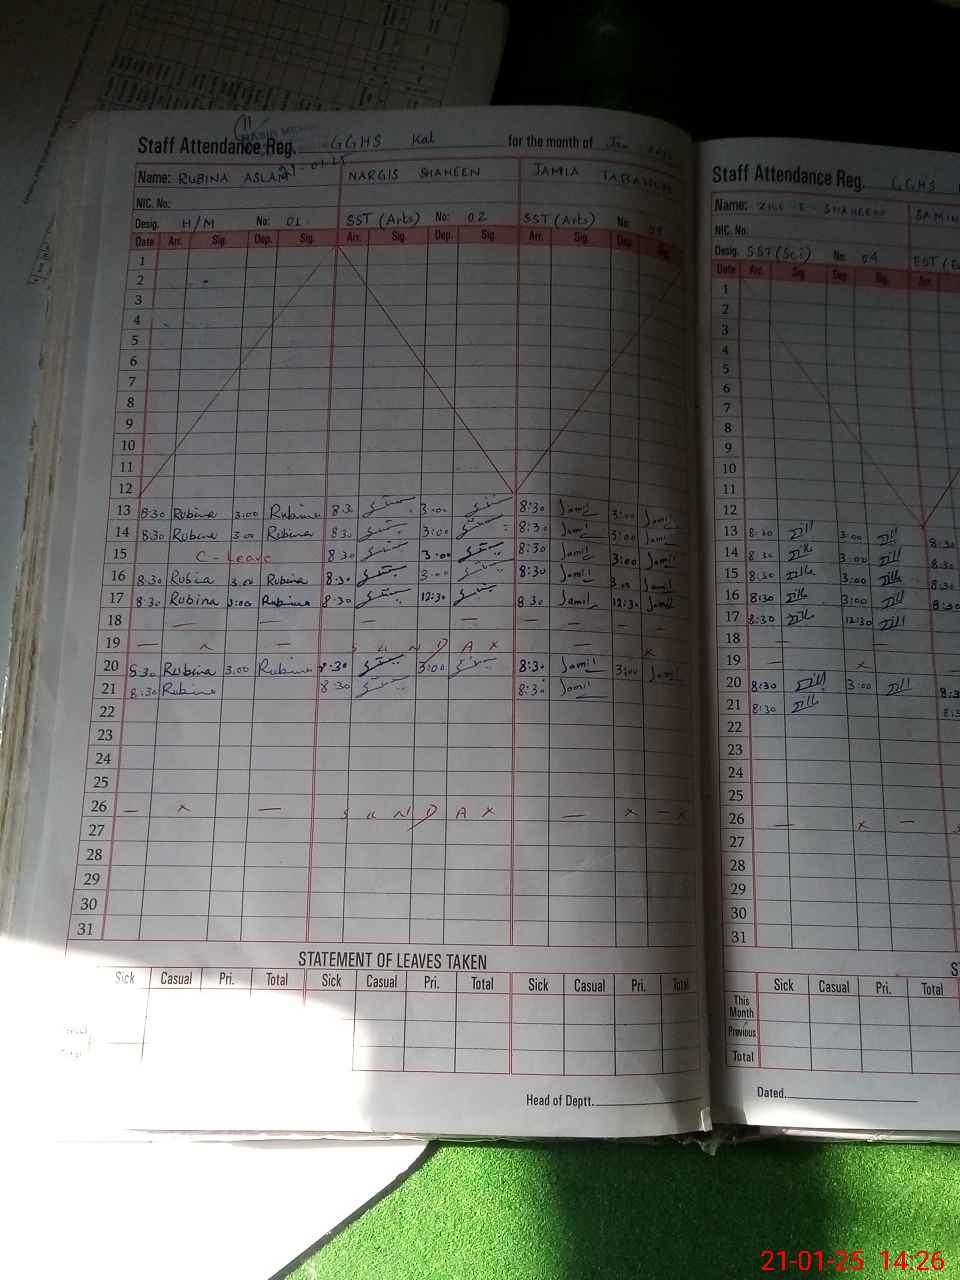 Staff Attendance Reg. GGHS Kat for the month of Jan
21-01-25
Name: RUBINA ASLAM NARGIS SHAHEEN JAMIA TABASSUM
NIC. No:
Desig. H/M No: 01 SST (Arts) No: 02 SST (Arts) No: 03
Date Arr. Sig. Dep. Sig. Arr. Sig. Dep. Sig. Arr. Sig. Dep. Sig.
1
2
3
4
5
6
7
8
9
10
11
12
13 8:30 Rubina 3:00 Rubina 8:30 3:00 8:30 Jamil 3:00 Jamil
14 8:30 Rubina 3:00 Rubina 8:30 3:00 8:30 Jamil 3:00 Jamil
15 C-Leave 8:30 3:00 8:30 Jamil 3:00 Jamil
16 8:30 Rubina 3:00 Rubina 8:30 3:00 8:30 Jamil 3:00 Jamil
17 8:30 Rubina 3:00 Rubina 8:30 12:30 8:30 Jamil 12:30 Jamil
18 — — — — — — — —
19 — x — S U N D A Y x
20 8:30 Rubina 3:00 Rubina 8:30 3:00 8:30 Jamil 3:00 Jamil
21 8:30 Rubina 8:30 8:30 Jamil
22
23
24
25
26 — x — S U N D A Y — x — x
27
28
29
30
31
STATEMENT OF LEAVES TAKEN
Sick Casual Pri. Total Sick Casual Pri. Total Sick Casual Pri. Total
Head of Deptt.
Staff Attendance Reg. GGHS
Name: ZILL-E-SHAHEEN
NIC. No:
Desig. SST (Sci) No: 04
Date Arr. Sig. Dep. Sig. Arr.
1
2
3
4
5
6
7
8
9
10
11
12
13 8:30 Zill 3:00 Zill 8:30
14 8:30 Zill 3:00 Zill 8:30
15 8:30 Zill 3:00 Zill 8:30
16 8:30 Zill 3:00 Zill 8:30
17 8:30 Zill 12:30 Zill
18 — —
19 — x
20 8:30 Zill 3:00 Zill
21 8:30 Zill
22
23
24
25
26 — x —
27
28
29
30
31
Sick Casual Pri. Total
This Month
Previous
Total
Dated.
21-01-25 14:26